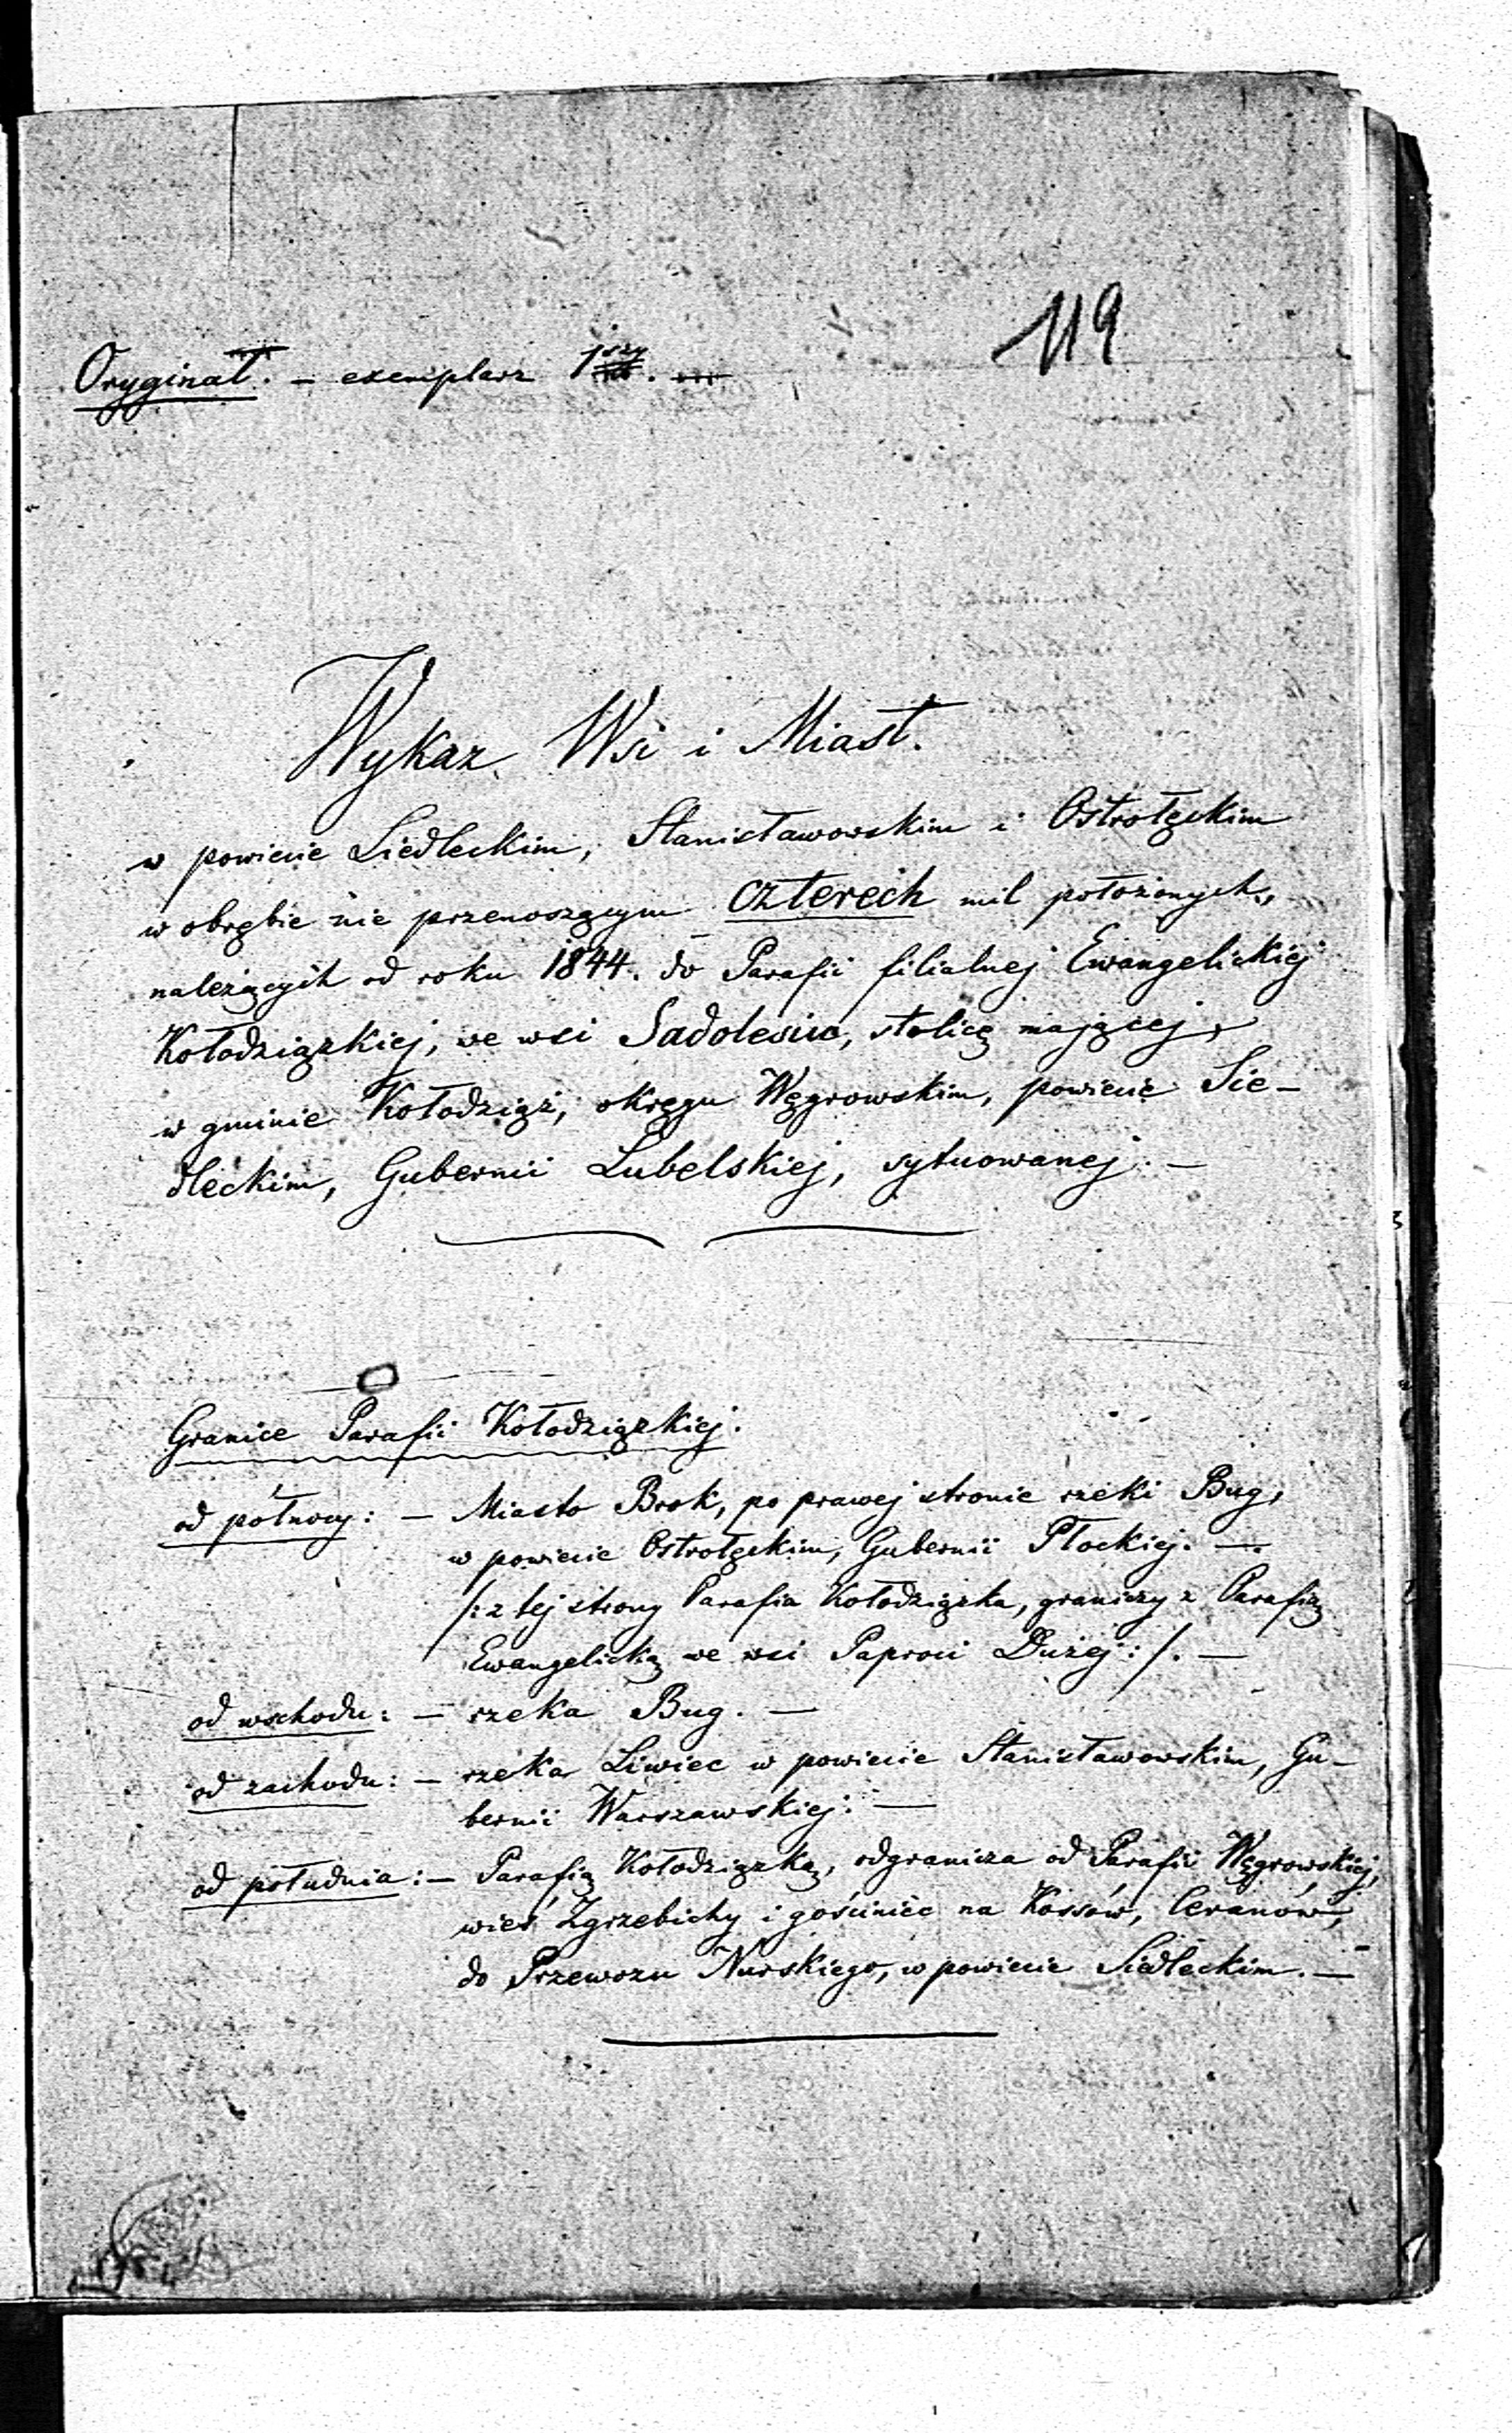 119
Oryginał. – exemplarz 1szy. –
Wykaz Wsi i Miast.
w powiecie Siedleckim, Stanisławowskim i Ostrołęckim
w obrębie nie przenoszącym czterech mil położonych,
należących od roku 1844. do Parafii filialnej Ewangelickiej
Kołodziązkiej, we wsi Sadolesiu, stolicę mającej,
w gminie Kołodziąż, okręgu Węgrowskim, powiecie Sie–
dleckim, Gubernii Lubelskiej, sytuowanej. –
Granice Parafii Kołodziązkiej.
od północy: – Miasto Brok, po prawej stronie rzeki Bug,
w powiecie Ostrołęckim, Gubernii Płockiej. –
/: z tej strony Parafia Kołodziązka, graniczy z Parafią
Ewangelicką we wsi Paproci Dużej :/. –
od wschodu: – rzeka Bug. –
od zachodu: – rzeka Liwiec w powiecie Stanisławowskim, Gu–
bernii Warszawskiej. –
od południa: – Parafią Kołodziązką, odgranicza od Parafii Węgrowskiej,
wieś Zgrzebichy i gościniec na Kossów, Ceranów,
do Przewozu Nurskiego, w powiecie Siedleckim. –